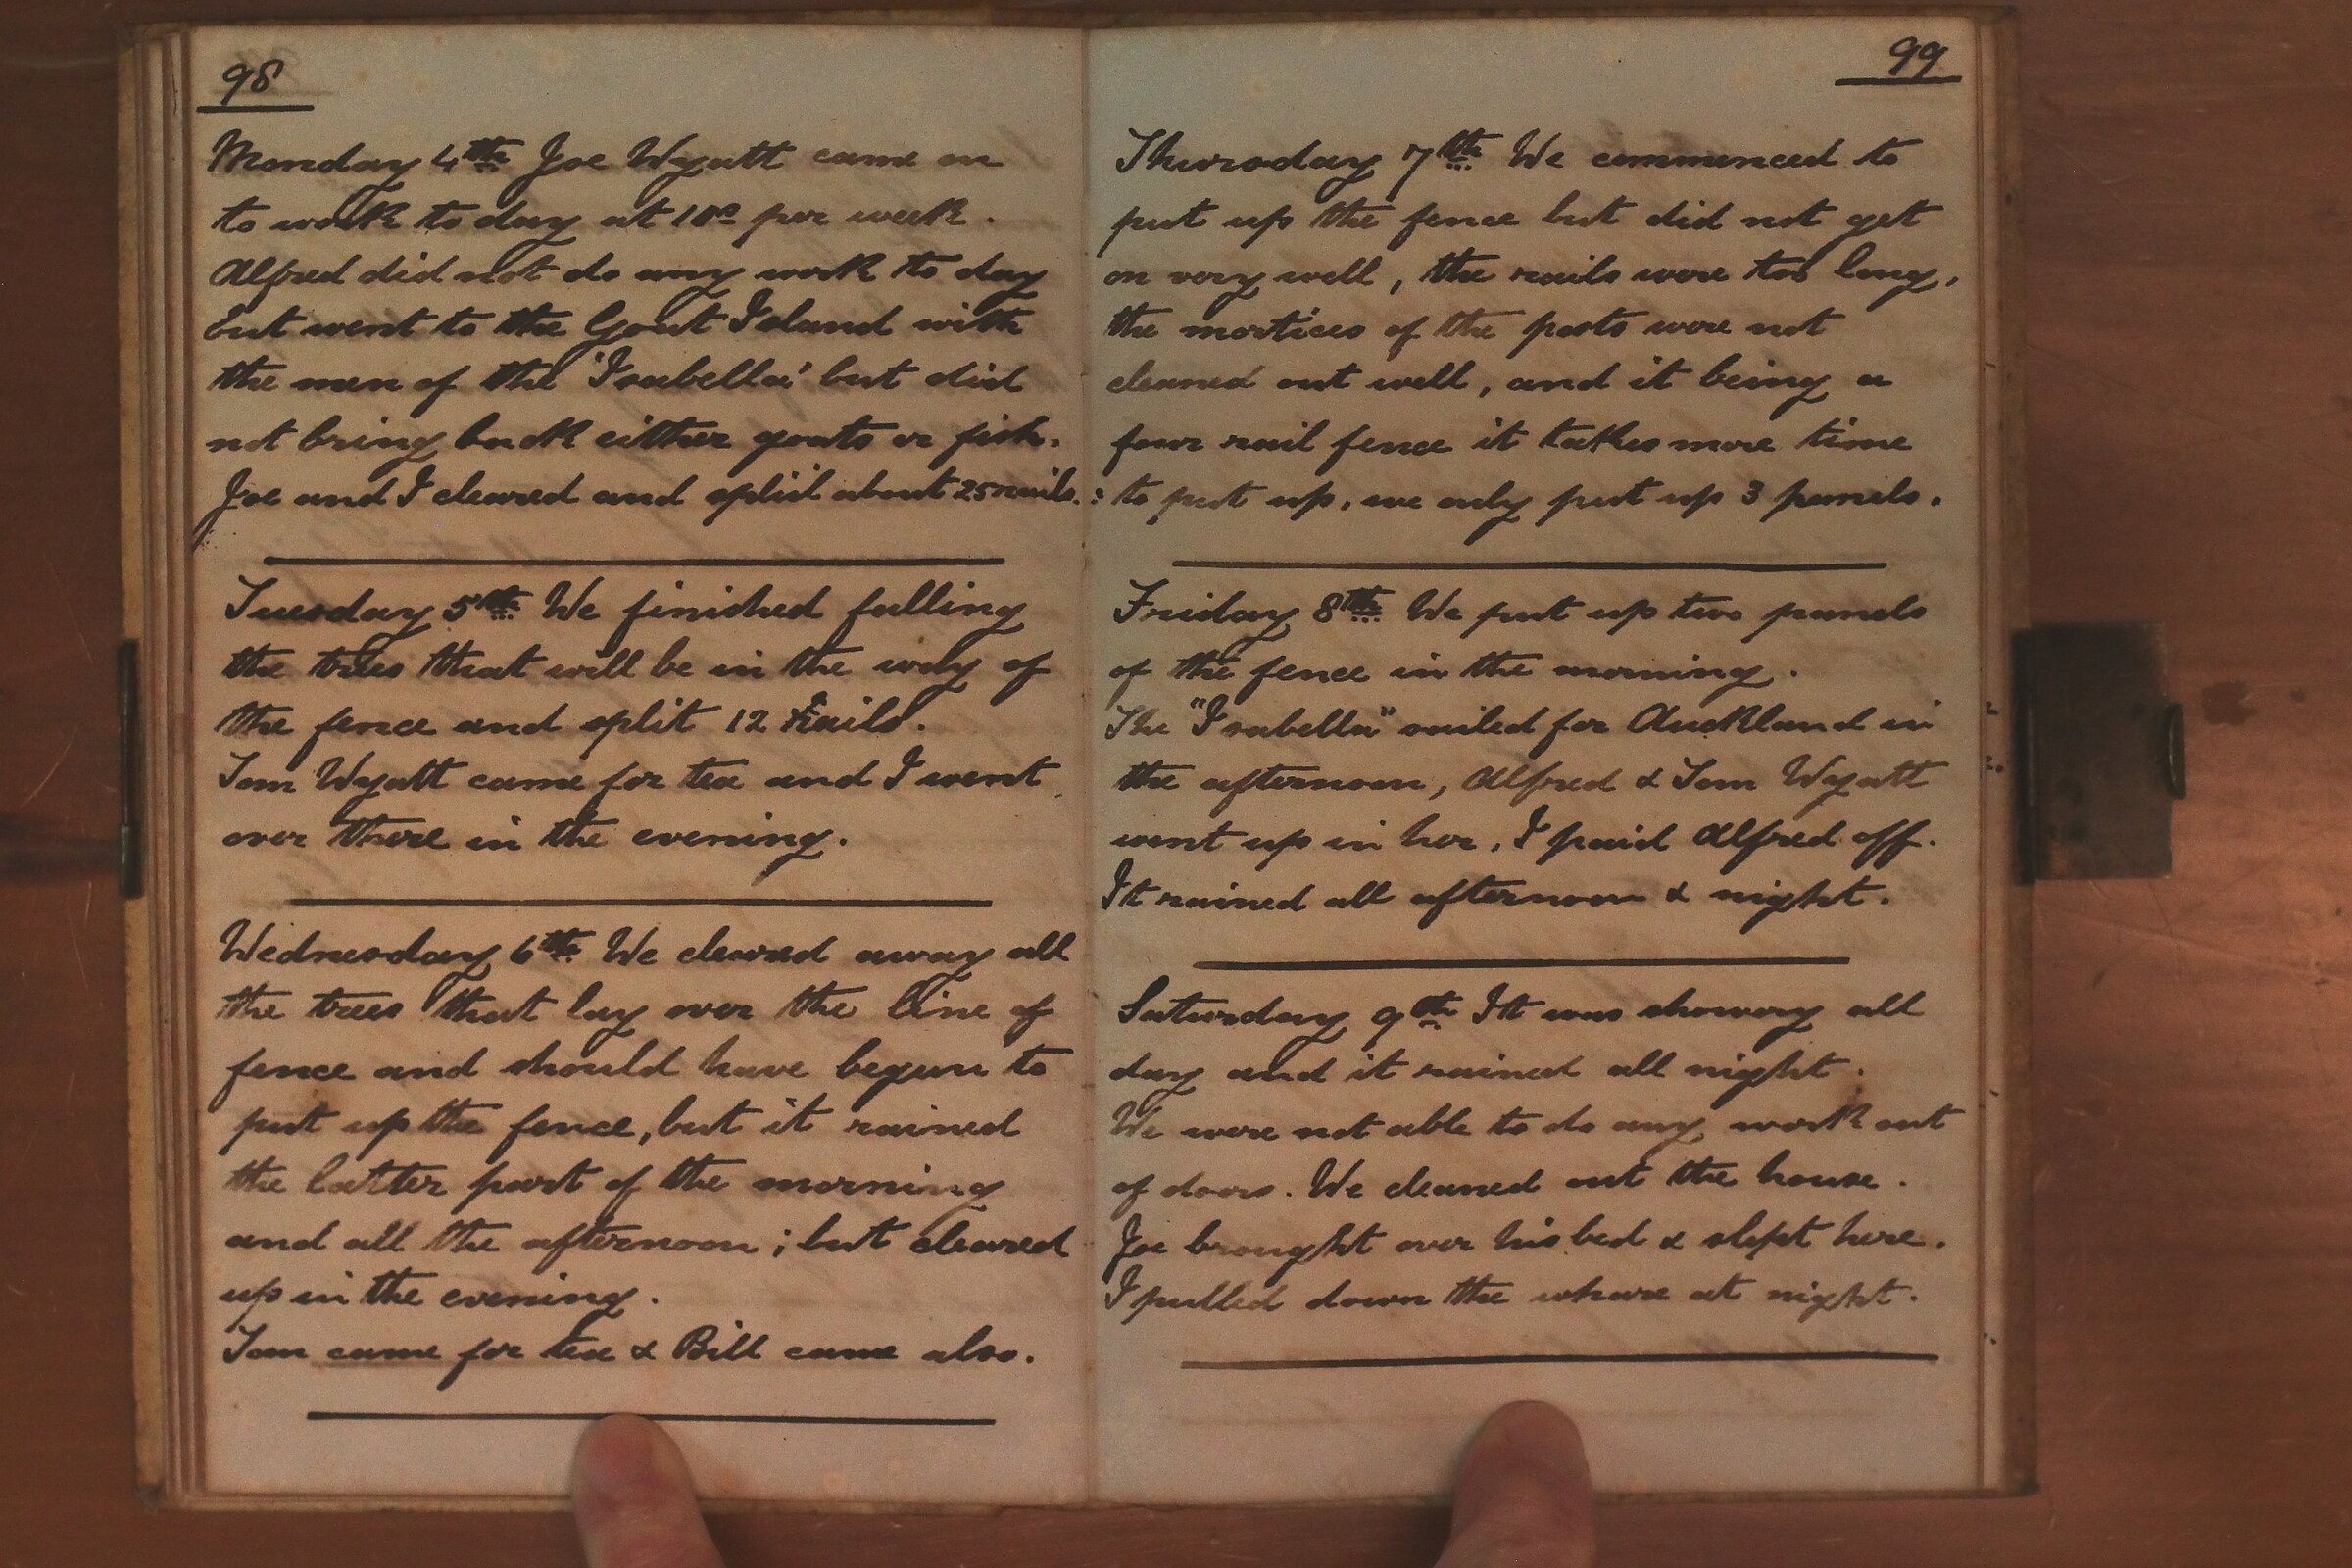 98
Monday 4th Joe Wyatt came on
to work to day at 10s per week.
Alfred did not do any work to day
but went to the Goat Island with
the men of the 'Isabella' but did
not bring back either goats or fish.
Joe and I cleared and split about 25 rails.
Tuesday 5th We finished falling
the trees that will be in the way of
the fence and split 12 rails.
Tom Wyatt came for tea and I went
over there in the evening.
Wednesday 6th We cleared away all
the trees that lay over the line of
fence and should have begun to
put up the fence, but it rained
the latter part of the morning
and all the afternoon; but cleared
up in the evening.
Tom came for tea & Bill came also.
99
Thursday 7th We commenced to
put up the fence but did not get
on very well, the rails were too long,
the mortices of the posts were not
cleaned out well, and it being a
four rail fence it takes more time
to put up, we only put up 3 panels.
Friday 8th We put up two panels
of the fence in the morning.
The "Isabella" sailed for Auckland in
the afternoon, Alfred & Tom Wyatt
went up in her, I paid Alfred off.
It rained all afternoon & night.
Saturday 9th It was showery all
day and it rained all night.
We were not able to do any work out
of doors. We cleaned out the house.
Joe brought over his bed & slept here.
I pulled down the whare at night.